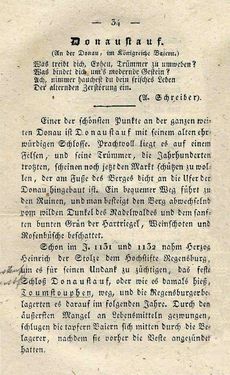 — 34 —
Donaustauf.
(An der Donau, im Königreiche Baiern.)
Was treibt dich, Epheu, Trümmer zu umweben?
Was bindet dich, um's modernde Gestein?
Ach, nimmer hauchest du dein frisches Leben
Der alternden Zerstörung ein.
(A. Schreiber.)
Einer der schönsten Punkte an der ganzen wei-
ten Donau ist Donaustauf mit seinem alten ehr-
würdigen Schlosse. Prachtvoll liegt es auf einem
Felsen, und seine Trümmer, die Jahrhunderten
trotzten, scheinen noch jetzt den Markt schützen zu wol-
len, der am Fuße des Berges dicht an die Ufer der
Donau hingebaut ist. Ein bequemer Weg führt zu
den Ruinen, und man besteigt den Berg abwechselnd
vom milden Dunkel des Nadelwaldes und dem sanf-
ten bunten Grün der Hartriegel, Weinschoten und
Rosenbüsche beschattet.
Schon im J. 1131 und 1132 nahm Herzog
Heinrich der Stolze dem Hochstifte Regensburg,
um es für seinen Undank zu züchtigen, das feste
Schloß Donaustauf, oder wie es damals hieß,
Toumstouphen, weg, und die Regensburger be-
lagerten es darauf im folgenden Jahre. Durch den
äußersten Mangel an Lebensmitteln gezwungen,
schlugen die tapfern Baiern sich mitten durch die Be-
lagerer, nachdem sie vorher die Veste angezündet
hatten.